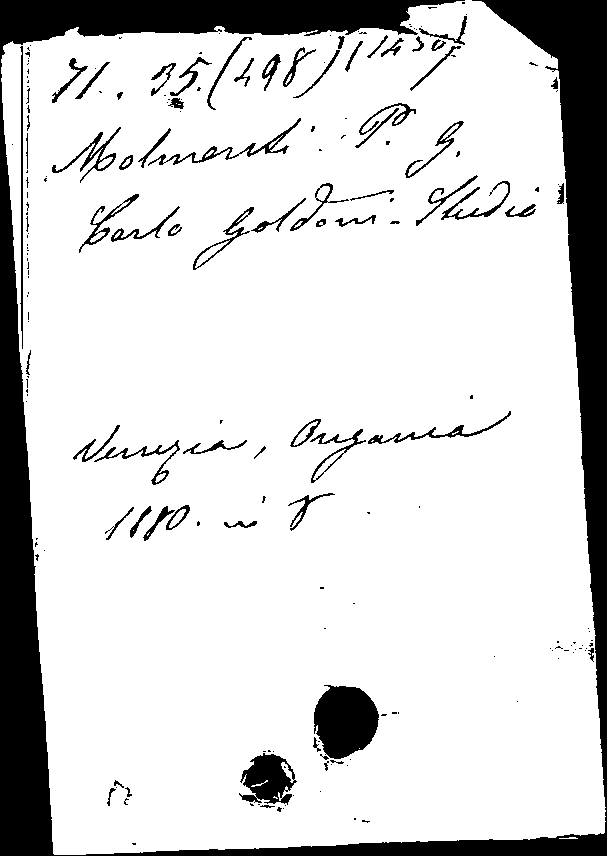 71. 35. (498)
Molmenti P. G.
Carlo Goldoni - Studio
Venezia, Ongania
1880. in 8